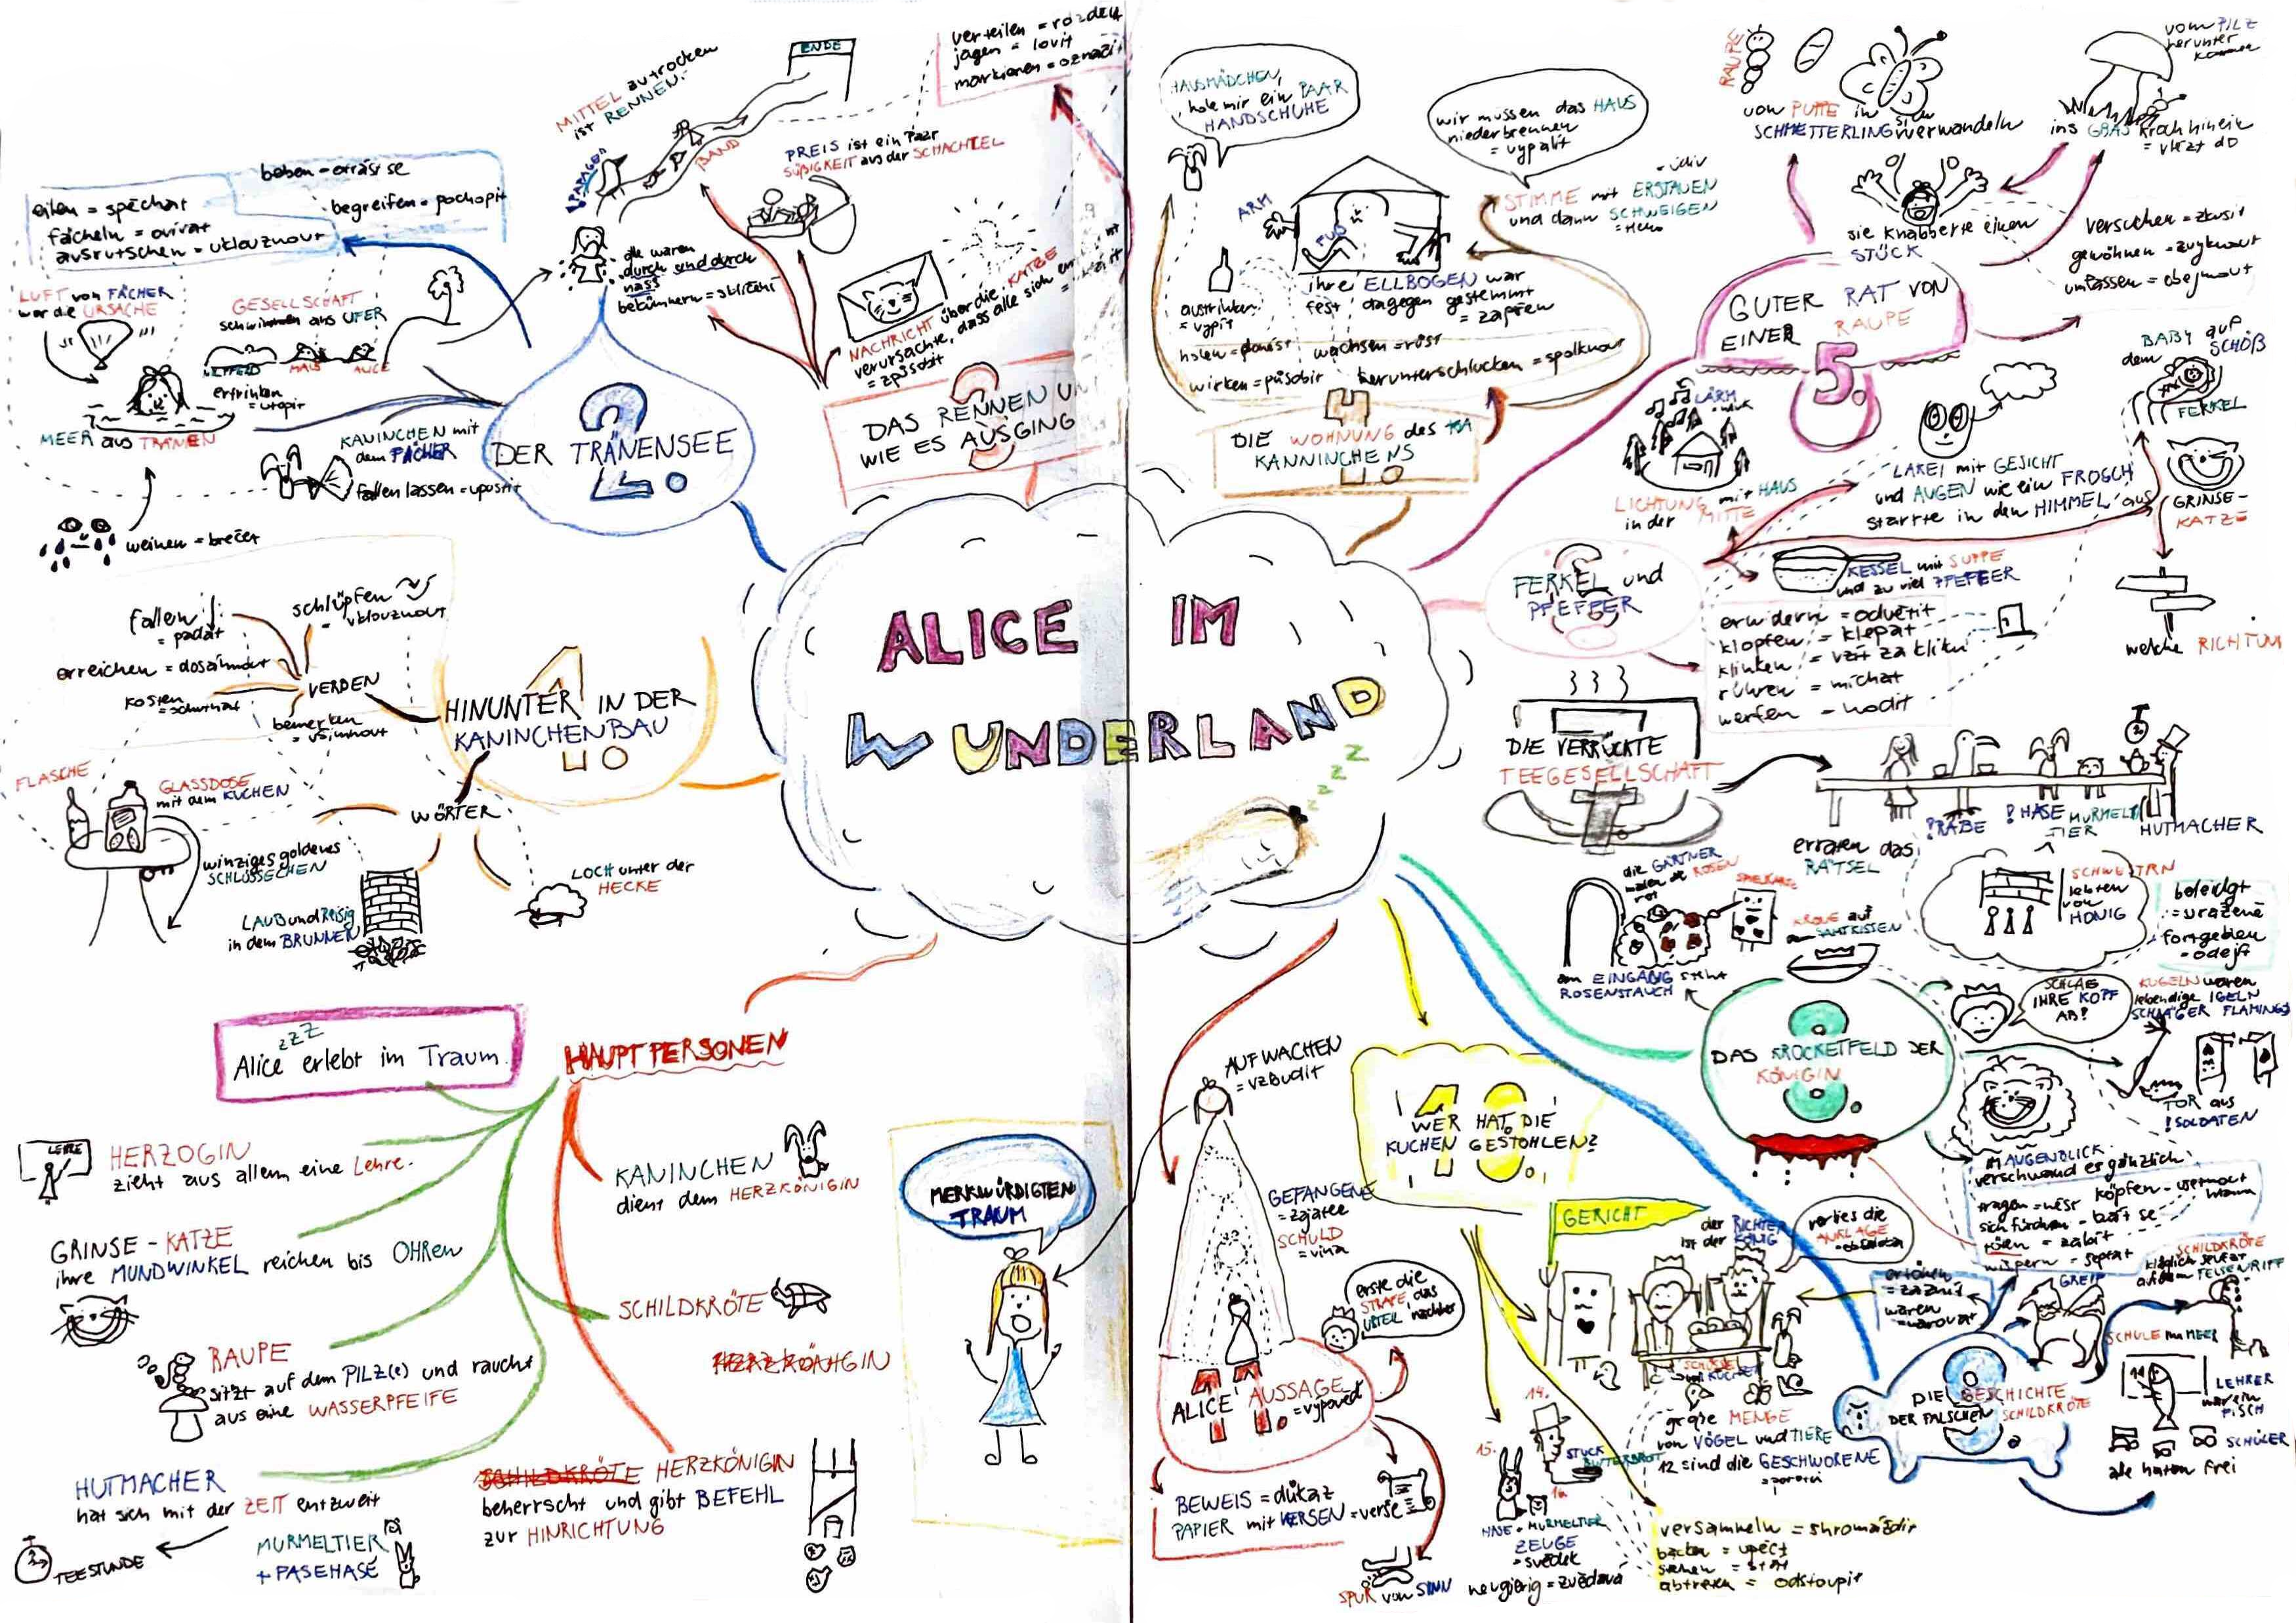 ALICE IM
WUNDERLAND
zzzz
1.
HINUNTER IN DER
KANINCHENBAU
VERDEN
fallen
= padat
schlüpfen
= vklouznout
erreichen = dosáhnout
kosten
bemerken
= všimnout
WÖRTER
FLASCHE
GLASSDOSE
mit dem KUCHEN
winziges goldenes
SCHLÜSSECHEN
LAUB und Reisig
in dem BRUNNEN
LOCH unter der
HECKE
2.
DER TRÄNENSEE
eilen = spěchat
fächeln = ovívat
ausrutschen = uklouznout
beben - otřást se
begreifen - pochopit
LUFT von FÄCHER
war die URSACHE
GESELLSCHAFT
schwimmen ans UFER
MAUS
ALICE
ertrinken
= utopit
MEER aus TRÄNEN
KANINCHEN mit
dem FÄCHER
fallen lassen = upustit
weinen = brečet
alle waren
durch und durch
nass
3.
DAS RENNEN
WIE ES AUSGING
MITTEL zu trocken
ist RENNEN.
ENDE
BAND
PAPAGEI
PREIS ist ein Paar
SÜßIGKEIT aus der SCHACHTEL
NACHRICHT über die KATZE
verursachte, dass alle sich
= způsobit
verteilen =
jagen = lovit
markieren =
4.
DIE WOHNUNG des
KANNINCHENS
HAUSMÄDCHEN,
hole mir ein PAAR
HANDSCHUHE
wir müssen das HAUS
niederbrennen
= vypálit
STIMME mit ERSTAUEN
und dann SCHWEIGEN
ARM
FUß
ihre ELLBOGEN war
fest dagegen gestemmt
= zapřen
austrinken
= vypít
holen = donést
wachsen = růst
wirken = působit
herunterschlucken = spolknout
5.
GUTER RAT VON
EINER RAUPE
RAUPE
von PUPPE in
SCHMETTERLING sich verwandeln
vom PILZ
herunter
ins GRAS kroch hinein
= vlézt do
sie knabberte einen
STÜCK
versuchen = zkusit
gewöhnen = zvyknout
umfassen = obejmout
6.
FERKEL und
PFEFFER
LÄRM
LICHTUNG mit HAUS
in der MITTE
LAKEI mit GESICHT
und AUGEN wie ein FROSCH
starrte in den HIMMEL aus
BABY auf
dem SCHOß
FERKEL
GRINSE-
KATZE
welche RICHTUN
KESSEL mit SUPPE
und zu viel PFEFFER
erwidern = odvětit
klopfen = klepat
klinken = vzít za kliku
rühren = míchat
werfen - hodit
DIE VERRÜCKTE
TEEGESELLSCHAFT
!RABE
!HASE
MURMELTIER
HUTMACHER
erraten das
RÄTSEL
SCHWESTRN
lebten
von
HONIG
beleidgt
= uražené
fortgehen
- odejít
8.
DAS KROCKETFELD DER
KÖNIGIN
die GÄRTNER
malen die ROSEN
rot
SPIELKARTE
KRONE auf
SAMTKISSEN
am EINGANG steht
ROSENSTAUCH
SCHLAG
IHRE KOPF
AB!
KUGELN waren
lebendige IGELN
SCHLÄGER FLAMINGS
TOR aus
!SOLDATEN
IM AUGENBLICK
verschwand er gänzlich
tragen = nést
sich fürchten - bát se
töten = zabít
wispern = šeptat
9.
DIE GESCHICHTE
DER FALSCHEN SCHILDKRÖTE
SCHILDKRÖTE
kläglich seufzt
auf dem FELSENRIFF
GREIF
SCHULE im MEER
LEHRER
war ein
FISCH
SCHÜLER
alle hatten frei
10.
WER HAT DIE
KUCHEN GESTOHLEN?
GERICHT
der RICHTER
ist der KÖNIG
verlies die
ANKLAGE
SCHÜSSEL
KUCHEN
große MENGE
von VÖGEL und TIERE
12 sind die GESCHWORENE
= porotci
14.
15.
STÜCK
BUTTERBROT
HASE + MURMELTIER
ZEUGE
= svědek
neugierig = zvědavá
versammeln = shromáždit
backen = upéct
stehen = stát
abtreten = odstoupit
11.
ALICE AUSSAGE
= výpověď
AUFWACHEN
= vzbudit
GEFANGENE
= zajatec
SCHULD
= vina
erste die
STRAFE das
URTEIL nachher
BEWEIS = důkaz
PAPIER mit VERSEN = verše
SPUR von SINN
MERKWÜRDIGTEN
TRAUM
HAUPTPERSONEN
zzz
Alice erlebt im Traum.
LEHRE
HERZOGIN
zieht aus allem eine Lehre.
GRINSE - KATZE
ihre MUNDWINKEL reichen bis OHRen
RAUPE
sitzt auf dem PILZ(e) und raucht
aus eine WASSERPFEIFE
HUTMACHER
hat sich mit der ZEIT entzweit
TEESTUNDE
MURMELTIER
+ FASEHASE
KANINCHEN
dient dem HERZKÖNIGIN
SCHILDKRÖTE
HERZKÖNIGIN
SCHILDKRÖTE HERZKÖNIGIN
beherrscht und gibt BEFEHL
zur HINRICHTUNG